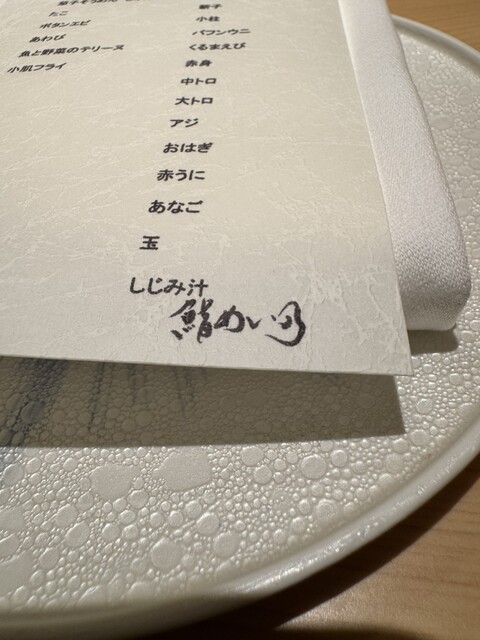 たこ
ボタンエビ
あわび
魚と野菜のテリーヌ
小肌フライ
新子
小柱
バフンウニ
くるまえび
赤身
中トロ
大トロ
アジ
おはぎ
赤うに
あなご
玉
しじみ汁
鮨めい乃